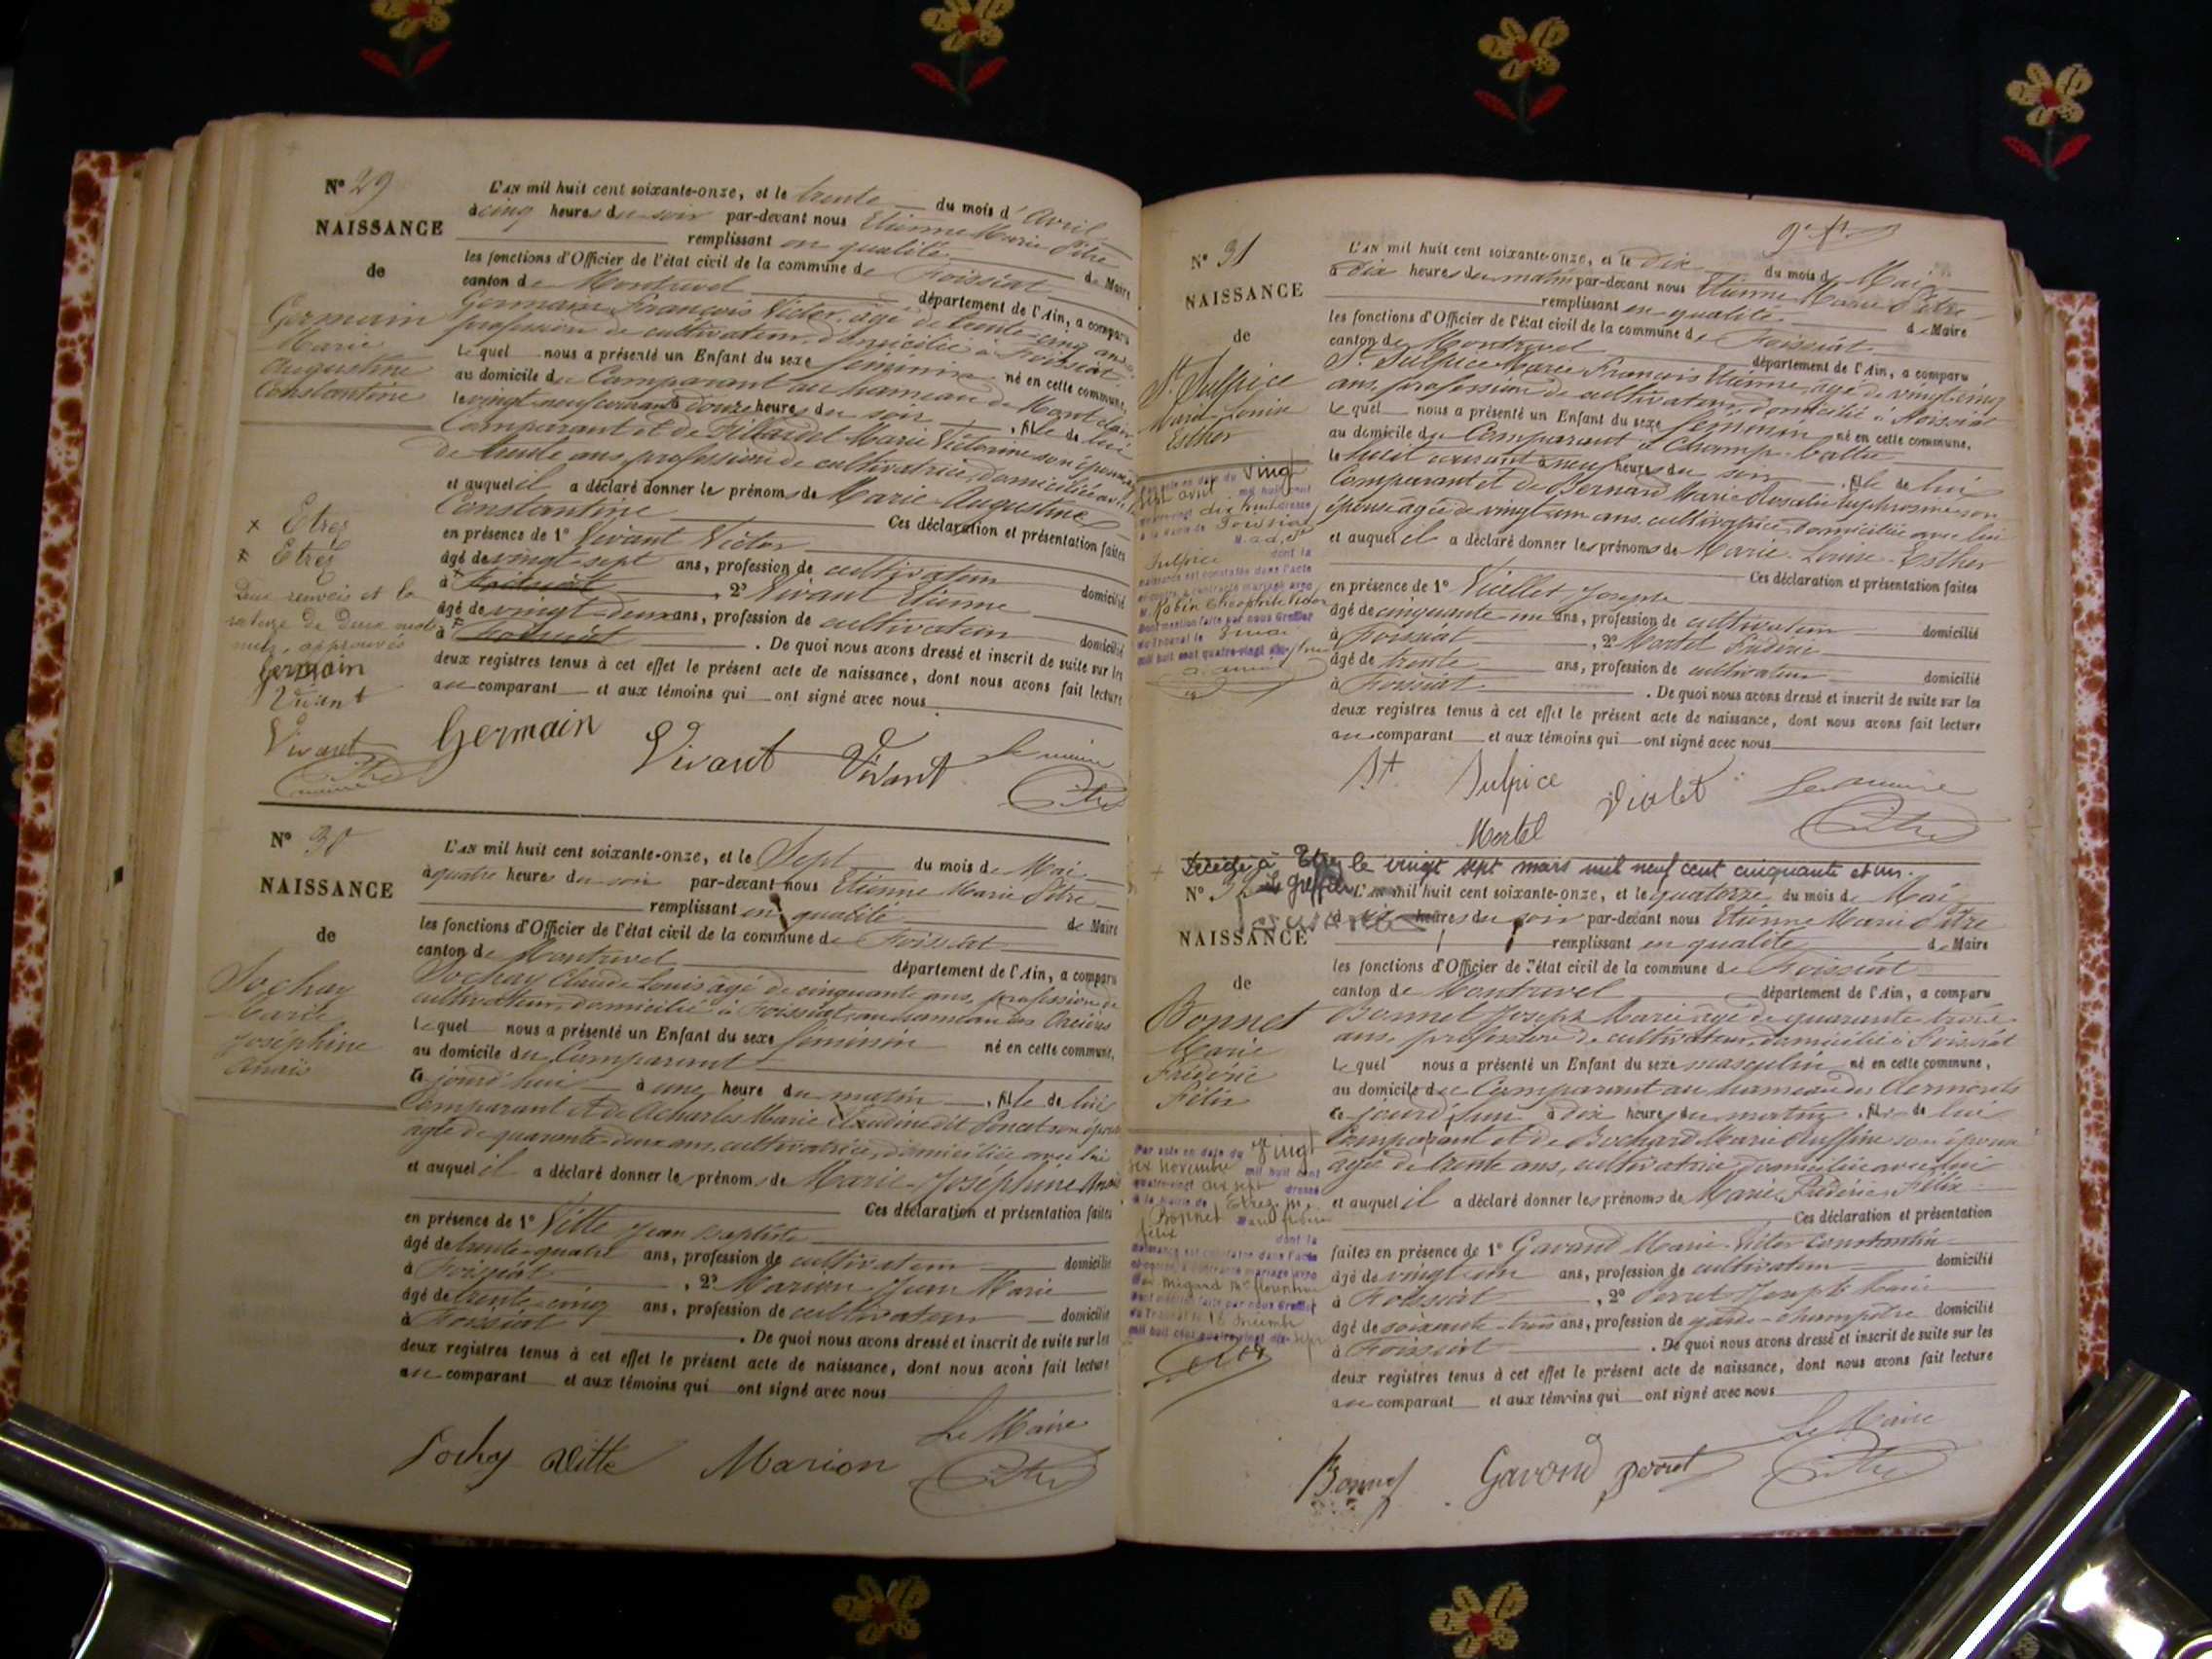 N° 29
NAISSANCE
de
Germain
Marie
Augustine
Constantine
L'AN mil huit cent soixante-onze, et le trente du mois d'Avril
à cinq heures du soir par-devant nous Etienne Marie Pitre
remplissant en qualité de Maire
les fonctions d'Officier de l'état civil de la commune de Foissiat
canton de Montrevel département de l'Ain, a comparu
Germain François Victor, âgé de trente cinq ans
profession de cultivateur, domicilié à Foissiat
Lequel nous a présenté un Enfant du sexe féminin né en cette commune,
au domicile du Comparant au hameau de
le vingt neuf courant à douze heures du soir, fille de lui
Comparant et de Marie Victorine son épouse
de trente ans, profession de cultivatrice, domiciliée avec lui
et auquel il a déclaré donner les prénoms de Marie-Augustine
Constantine Ces déclaration et présentation faites
en présence de 1° Vivant Victor
âgé de vingt-sept ans, profession de cultivateur domicilié
à Foissiat, 2° Vivant Etienne
âgé de vingt-deux ans, profession de cultivateur domicilié
à Foissiat. De quoi nous avons dressé et inscrit de suite sur les
deux registres tenus à cet effet le présent acte de naissance, dont nous avons fait lecture
au comparant et aux témoins qui ont signé avec nous
x Etrez
x Etrez
Deux renvois et la
rature de deux mots
nuls, approuvés
Germain
Vivant
Vivant
Pitre
maire
Germain Vivant Vivant Le maire
Pitre
N° 30
NAISSANCE
de
Sochay
Marie
Joséphine
Anaïs
L'AN mil huit cent soixante-onze, et le Sept du mois de Mai
à quatre heures du soir par-devant nous Etienne Marie Pitre
remplissant en qualité de Maire
les fonctions d'Officier de l'état civil de la commune de Foissiat
canton de Montrevel département de l'Ain, a comparu
Sochay Claude Louis âgé de cinquante ans, profession de
cultivateur, domicilié à Foissiat, au hameau des
Lequel nous a présenté un Enfant du sexe féminin né en cette commune,
au domicile du Comparant
Ce jourd'hui à une heure du matin, fille de lui
Comparant et de Marie Claudine dit Poncet son épouse
âgée de quarante-deux ans, cultivatrice, domiciliée avec lui
et auquel il a déclaré donner les prénoms de Marie-Joséphine Anaïs
Ces déclaration et présentation faites
en présence de 1° Vitte Jean Baptiste
âgé de trente-quatre ans, profession de cultivateur domicilié
à Foissiat, 2° Marion Jean Marie
âgé de trente-cinq ans, profession de cultivateur domicilié
à Foissiat. De quoi nous avons dressé et inscrit de suite sur les
deux registres tenus à cet effet le présent acte de naissance, dont nous avons fait lecture
au comparant et aux témoins qui ont signé avec nous
Sochay Vitte Marion Le Maire
Pitre
N° 31
NAISSANCE
de
St Sulpice
Marie-Louise
Esther
L'AN mil huit cent soixante-onze, et le dix du mois de Mai
à dix heures du matin par-devant nous Etienne Marie Pitre
remplissant en qualité de Maire
les fonctions d'Officier de l'état civil de la commune de Foissiat
canton de Montrevel département de l'Ain, a comparu
St Sulpice Marie François Etienne, âgé de vingt-cinq
ans, profession de cultivateur, domicilié à Foissiat
Lequel nous a présenté un Enfant du sexe féminin né en cette commune,
au domicile du Comparant à Champ-battu
le huit courant à neuf heures du soir, fille de lui
Comparant et de Bernard Marie Rosalie Euphrosine son
épouse âgée de vingt-un ans, cultivatrice, domiciliée avec lui
et auquel il a déclaré donner les prénoms de Marie-Louise-Esther
Ces déclaration et présentation faites
en présence de 1° Viollet Joseph
âgé de cinquante-un ans, profession de cultivateur domicilié
à Foissiat, 2° Mortel Frédéric
âgé de trente ans, profession de cultivateur domicilié
à Foissiat. De quoi nous avons dressé et inscrit de suite sur les
deux registres tenus à cet effet le présent acte de naissance, dont nous avons fait lecture
au comparant et aux témoins qui ont signé avec nous
Par acte en date du vingt
sept avril mil huit cent
quatre-vingt dix huit dressé
à la mairie de Foissiat
Sulpice dont la
naissance est constatée dans l'acte
ci-contre a contracté mariage avec
M. Robin Théophile Victor
Dont mention faite par nous Greffier
du Tribunal le 3 mai
mil huit cent quatre-vingt dix-huit
St Sulpice Violet Le maire
Mortel Pitre
Décédé à Etrez le vingt sept mars mil neuf cent cinquante et un.
Le Greffier
N° 32
NAISSANCE
de
Bonnet
Marie
Frédéric
Félix
L'AN mil huit cent soixante-onze, et le quatorze du mois de Mai
heures du soir par-devant nous Etienne Marie Pitre
remplissant en qualité de Maire
les fonctions d'Officier de l'état civil de la commune de Foissiat
canton de Montrevel département de l'Ain, a comparu
Bonnet Joseph Marie âgé de quarante trois
ans, profession de cultivateur, domicilié à Foissiat
Lequel nous a présenté un Enfant du sexe masculin né en cette commune,
au domicile du Comparant au hameau des Clermonts
Ce jourd'hui à dix heures du matin, fils de lui
Comparant et de Bochard Marie Ruffine son épouse
âgée de trente ans, cultivatrice, domiciliée avec lui
et auquel il a déclaré donner les prénoms de Marie Frédéric Félix
Ces déclaration et présentation
faites en présence de 1° Gavand Marie-Victor Constantin
âgé de vingt-un ans, profession de cultivateur domicilié
à Foissiat, 2° Perret Joseph Marie
âgé de soixante-trois ans, profession de garde-champêtre domicilié
à Foissiat. De quoi nous avons dressé et inscrit de suite sur les
deux registres tenus à cet effet le présent acte de naissance, dont nous avons fait lecture
au comparant et aux témoins qui ont signé avec nous
Par acte en date du vingt
six novembre mil huit cent
quatre-vingt dix sept dressé
à la mairie de Etrez, M.
Bonnet Marie Frédéric
Félix dont la
naissance est constatée dans l'acte
ci-contre a contracté mariage avec
Dont mention faite par nous Greffier
du Tribunal le 16 Décembre
mil huit cent quatre-vingt dix-sept
Bonnet Gavand perret Le Maire
Pitre